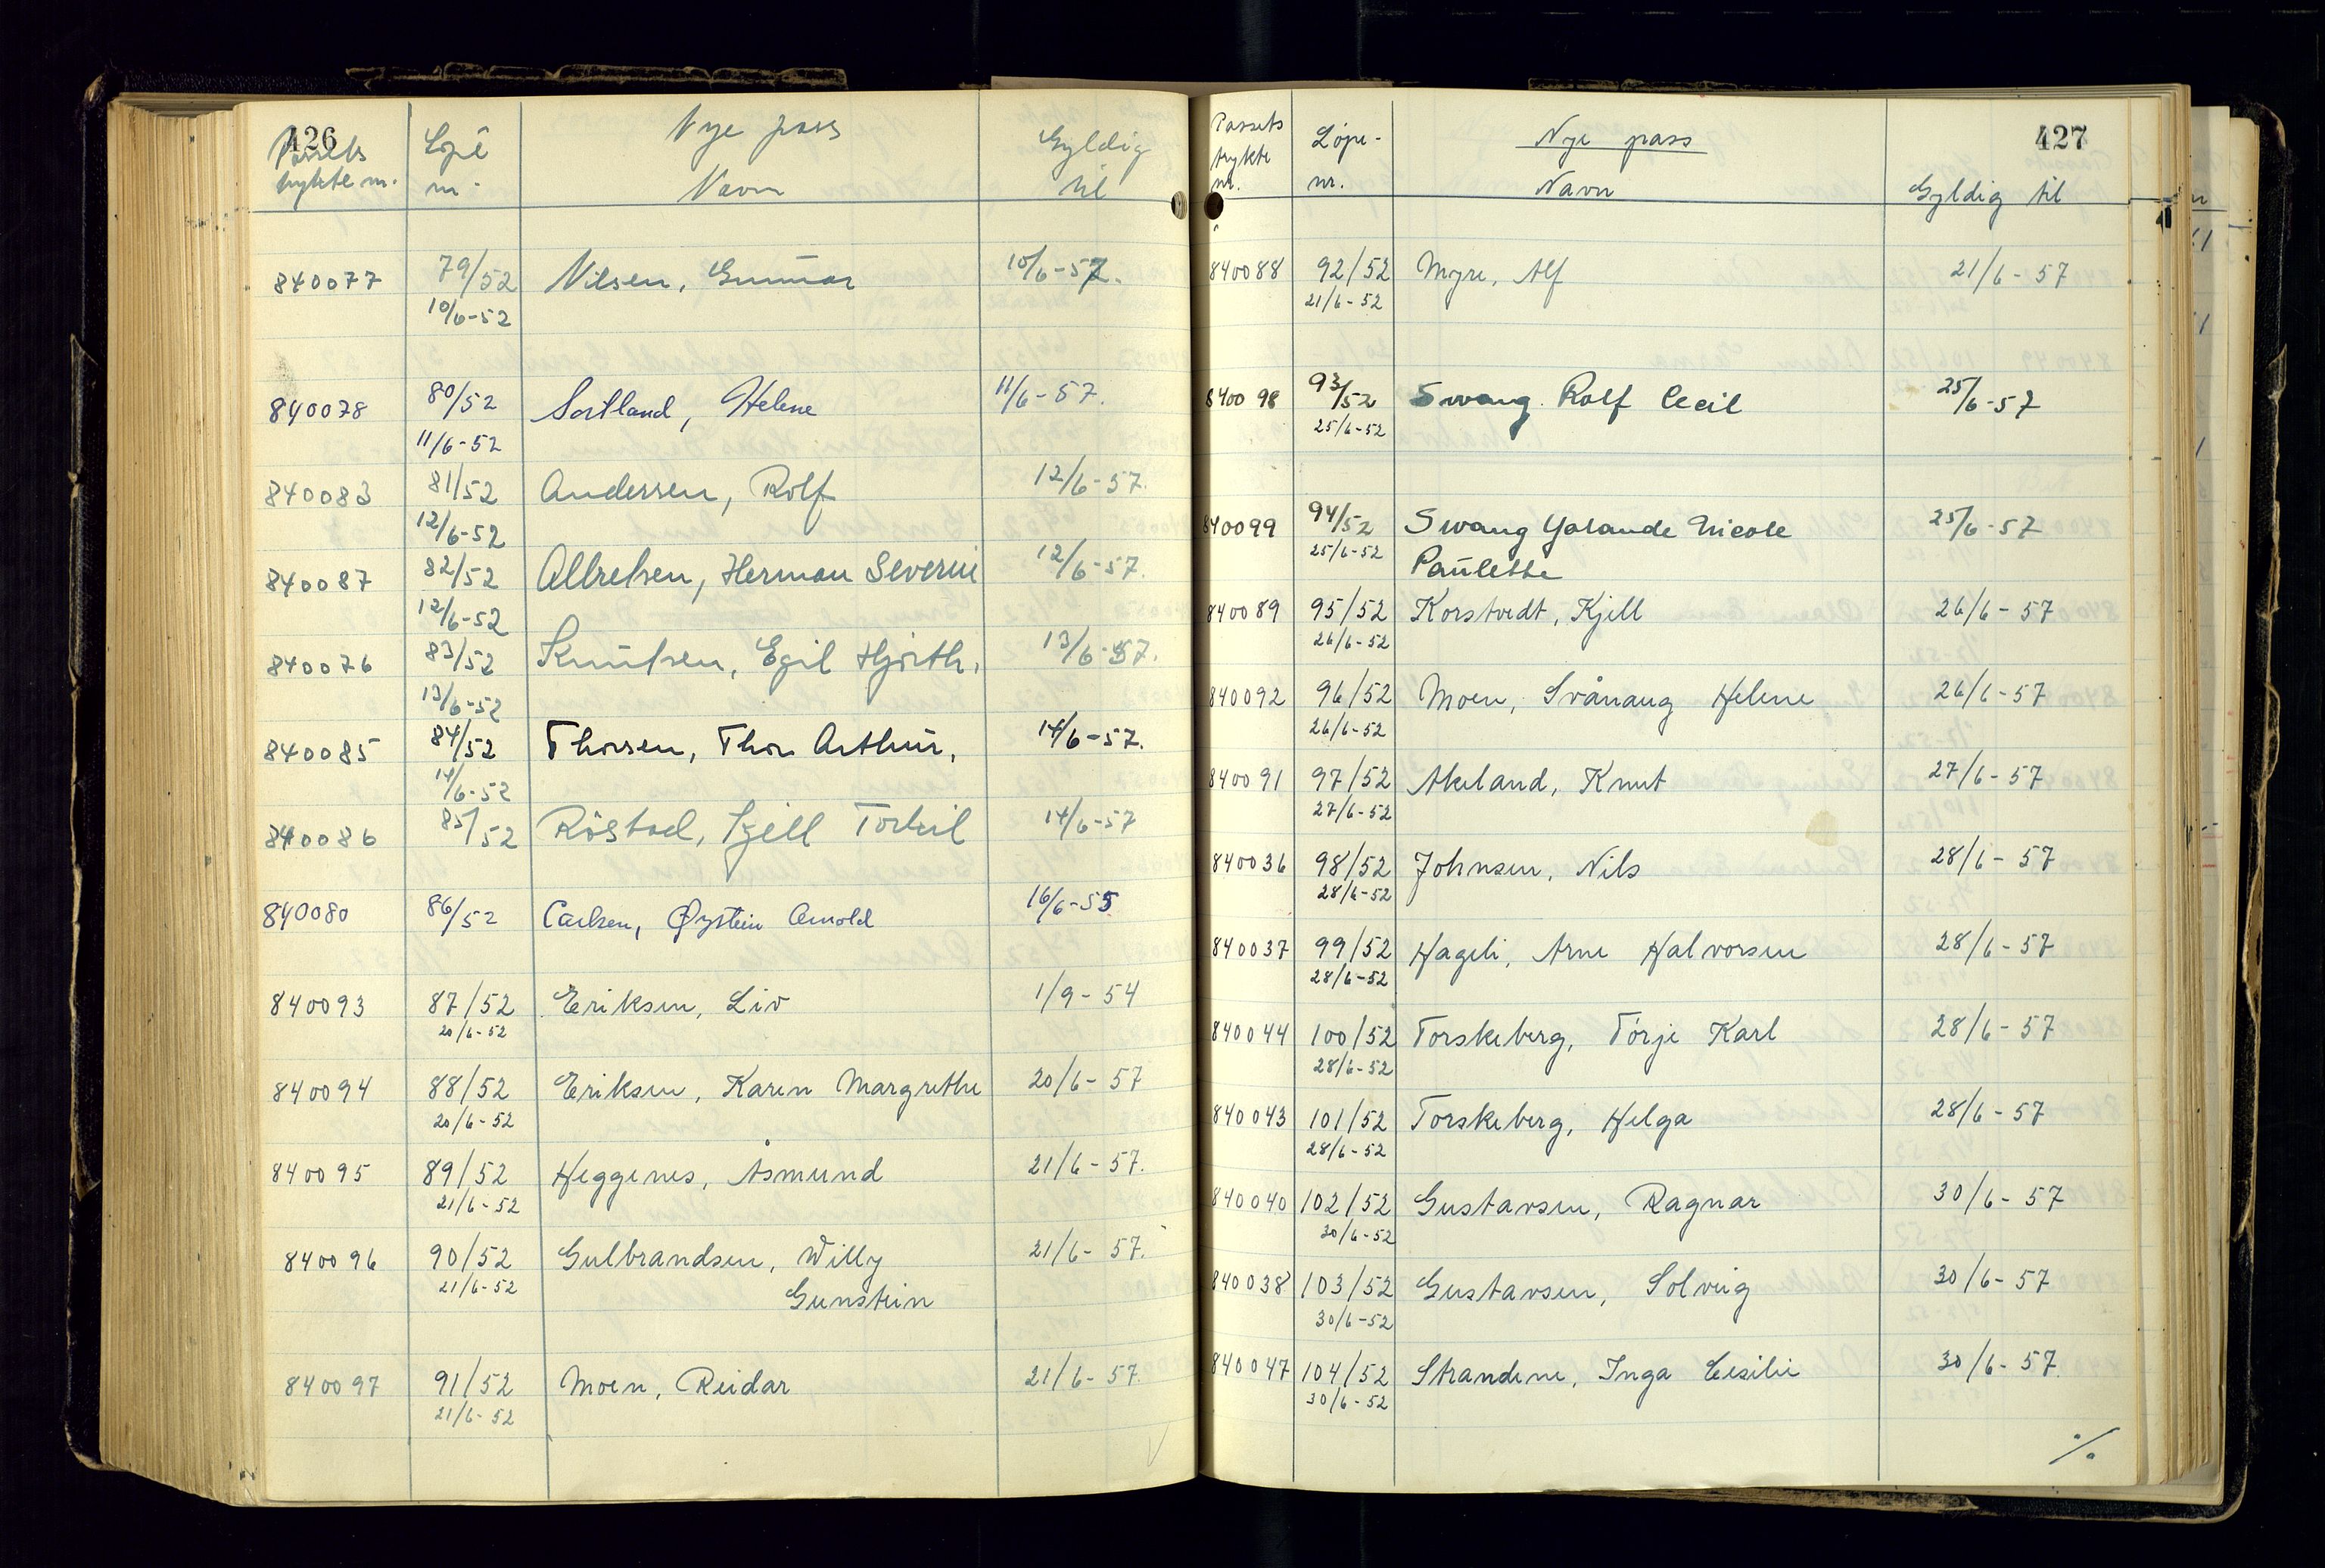 426
Passets
trykte nr.
Løpe
nr.
Nye pass
Navn
Gyldig
til
840077 79/52 Nilsen, Gunnar 10/6-57.
10/6-52
840078 80/52 Sortland, Helene 11/6-57.
11/6-52
840083 81/52 Andersen, Rolf 12/6-57.
12/6-52
840087 82/52 Albretsen, Herman Severin 12/6-57.
12/6-52
840076 83/52 Knutsen, Egil Hjorth. 13/6-57.
13/6-52
840085 84/52 Thorsen, Thor Arthur. 14/6-57.
14/6-52
840086 85/52 Röstad, Kjell Torkil 14/6-57
840080 86/52 Carlsen, Øystein Arnold 16/6-55
840093 87/52 Eriksen, Liv 1/9-54
20/6-52
840094 88/52 Eriksen, Karen Margrethe 20/6-57
20/6-52
840095 89/52 Heggenes, Åsmund 21/6-57.
21/6-52
840096 90/52 Gulbrandsen, Willy 21/6-57.
21/6-52 Gunstein
840097 91/52 Moen, Reidar 21/6-57.
21/6-52
427
Passets
trykte
nr.
Løpe-
nr.
Nye pass
Navn
Gyldig til
840088 92/52 Myre, Alf 21/6-57
21/6-52
840098 93/52 Swang Rolf Cecil 25/6-57
25/6-52
840099 94/52 Swang Yolande Nicole 25/6-57
25/6-52 Paulette
840089 95/52 Korstvedt, Kjell 26/6-57
26/6-52
840092 96/52 Moen, Svånaug Helene 26/6-57
26/6-52
840091 97/52 Akeland, Knut 27/6-57
27/6-52
840036 98/52 Johnsen, Nils 28/6-57
28/6-52
840037 99/52 Hageli, Arne Halvorsen 28/6-57
28/6-52
840044 100/52 Torskeberg, Tórje Karl 28/6-57
28/6-52
840043 101/52 Torskeberg, Helga 28/6-57
28/6-52
840040 102/52 Gustavsen, Ragnar 30/6-57
30/6-52
840038 103/52 Gustavsen, Solveig 30/6-57
30/6-52
840047 104/52 Strandene, Inga Cesilie 30/6-57.
30/6-52
./.